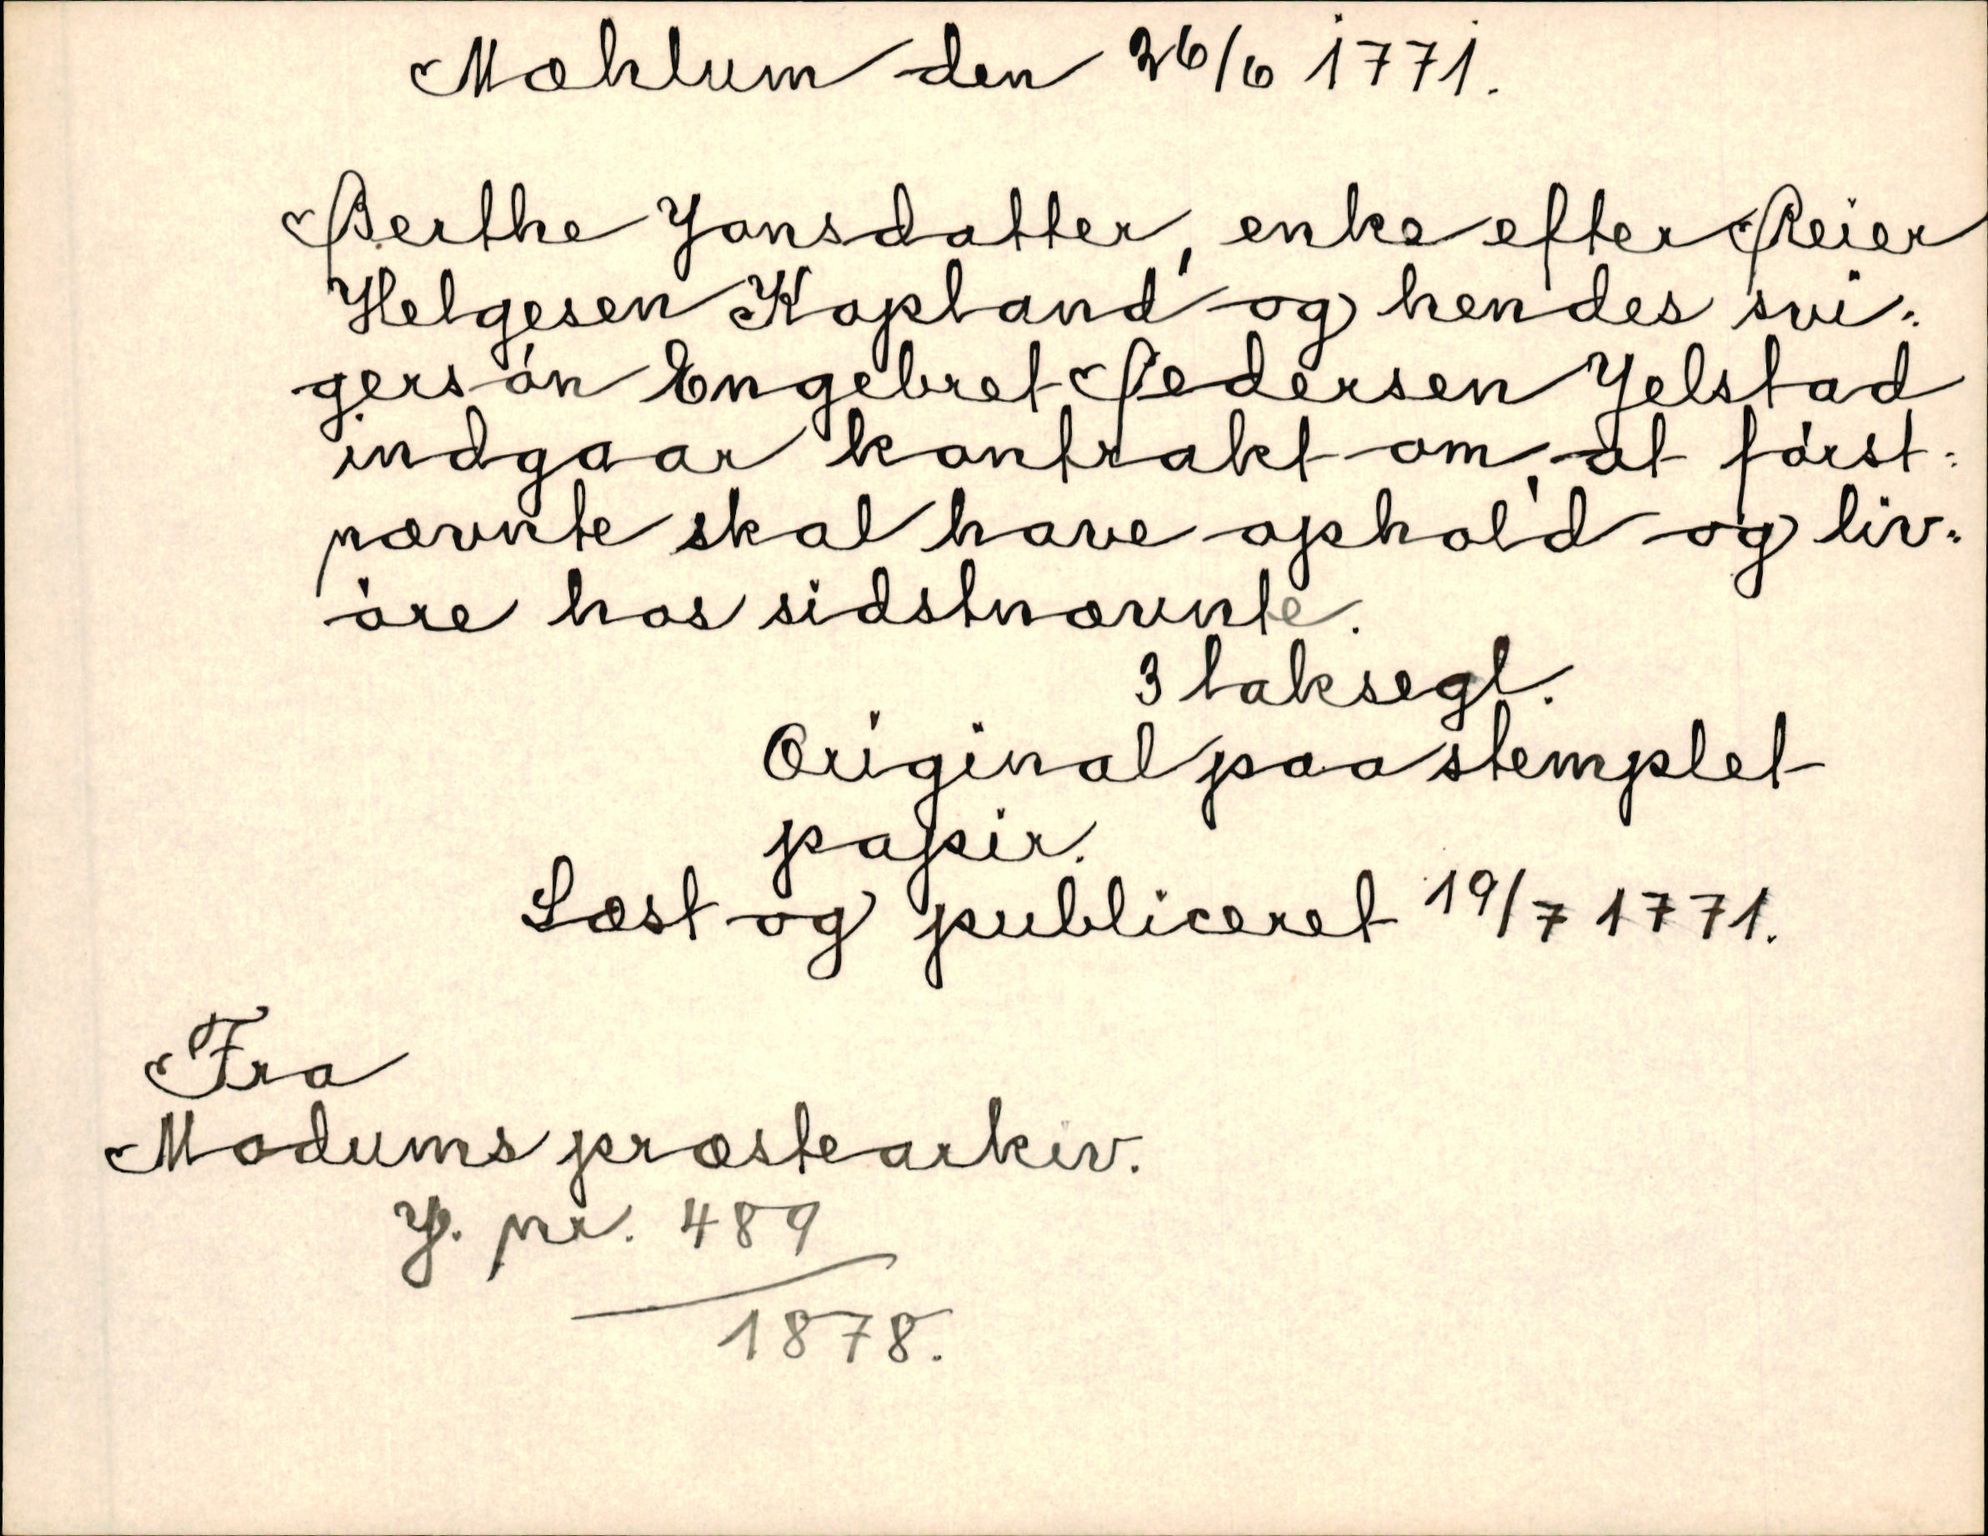 Mæhlum den 26/6 1771.
Berthe Jonsdatter, enke efter Reier
Helgesen Kopland og hendes svi-
gersön Engebret Pedersen Jelstad
indgaar kontrakt om, at först-
nævnte skal have ophold og liv-
öre hos sidstnævnte.
3 laksegl.
Original paa stemplet
papir.
Læst og publiceret 19/7 1771.
Fra
Modums præstearkiv.
J. nr. 489
1878.